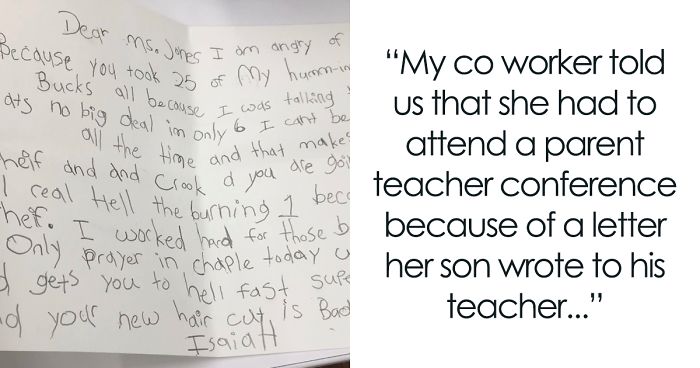 Dear Ms. Jones I am angry of
Because you took 25 of My humm-in
Bucks all because I was talling
ats no big deal im only 6 I cant be
all the time and that makes
heif and and Crook d you are goi
real Hell the burning 1 becc
hef. I wocked hard for those b
Only prayer in chaple today
d gets you to hell fast supe
d your new hair cut is Bad
Isaiah
“My co worker told
us that she had to
attend a parent
teacher conference
because of a letter
her son wrote to his
teacher...”